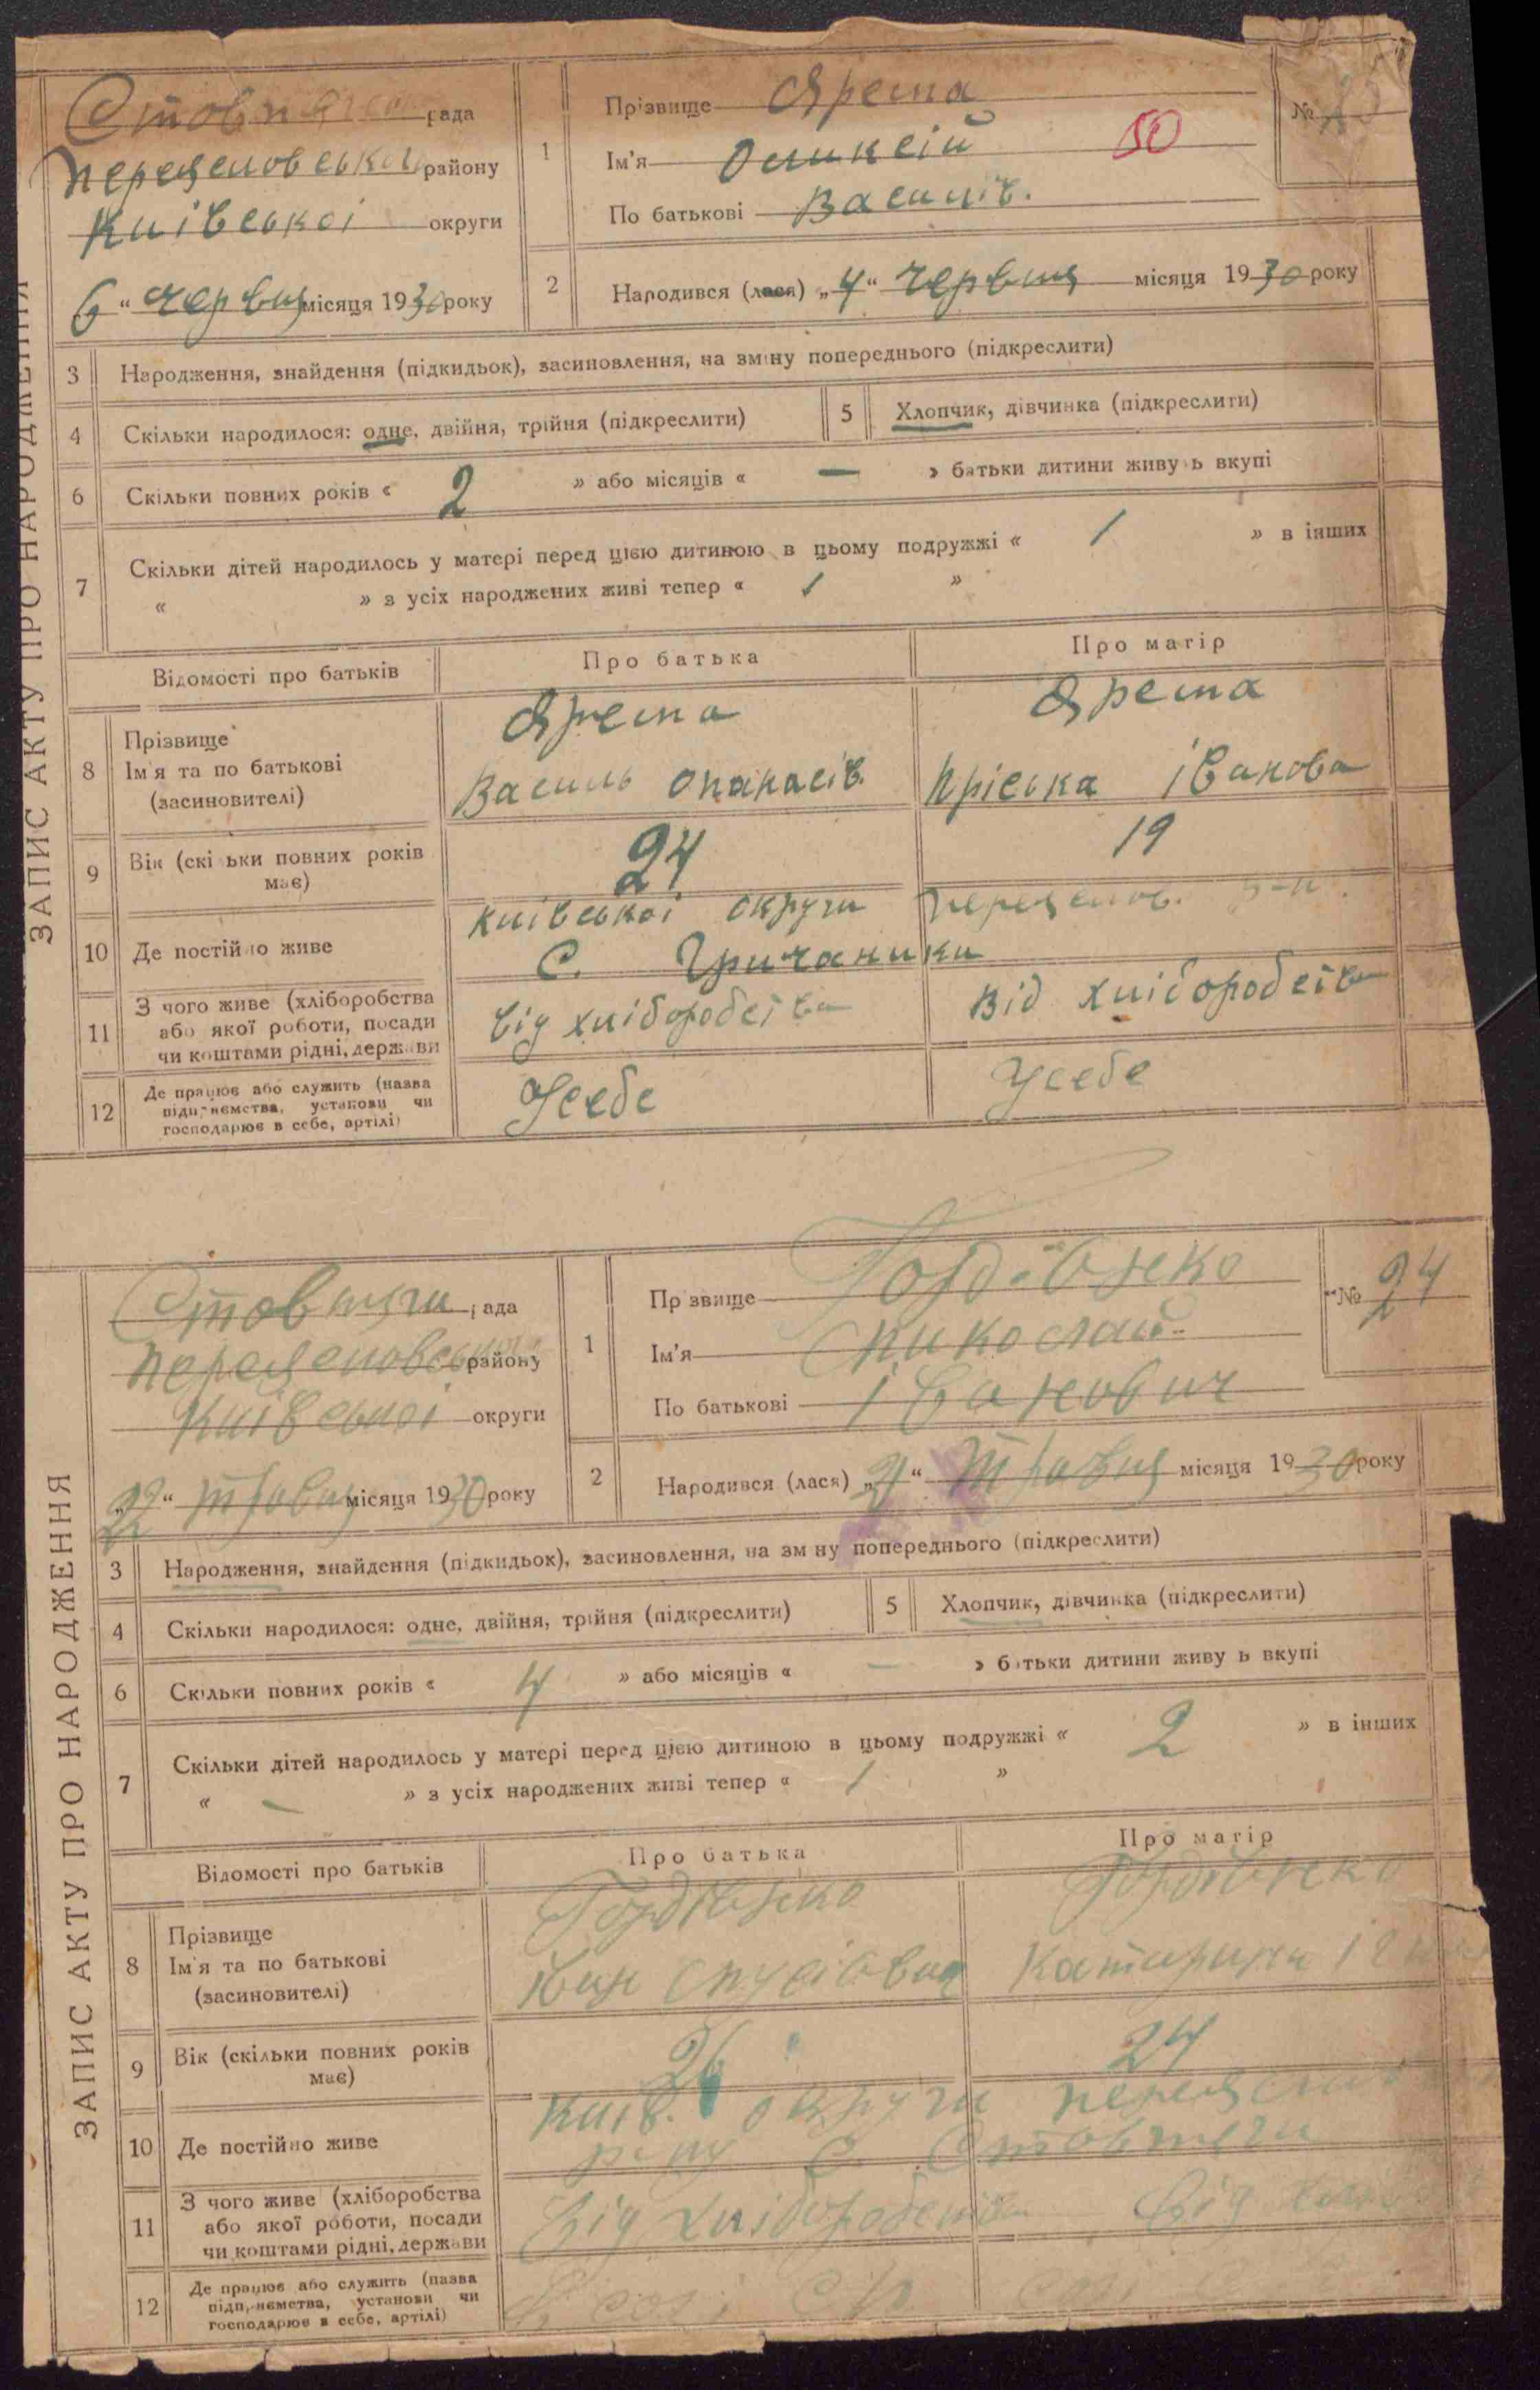 ЗАПИС АКТУ ПРО НАРОДЖЕННЯ
рада
району
Київської округи
6 “ Червця місяця 1930 року
1
Прізвище Ярема
Ім'я Олексій
По батькові Василів.
50
№
2
Народився (лася) „ 4 “ Червця місяця 1930 року
3 Народження, знайдення (підкидьок), засиновлення, на зміну попереднього (підкреслити)
4 Скільки народилося: одне, двійня, трійня (підкреслити)
5 Хлопчик, дівчинка (підкреслити)
6 Скільки повних років « 2 » або місяців « — » батьки дитини живуть вкупі
7 Скільки дітей народилось у матері перед цією дитиною в цьому подружжі « 1 » в інших
« » з усіх народжених живі тепер « 1 »
Відомості про батьків Про батька Про матір
8 Прізвище
Ім'я та по батькові
(засиновителі)
Ярема
Василь Опанасів.
Ярема
Пріська Іванова
9 Вік (скільки повних років
має)
24
19
10 Де постійно живе
Київської округи
С.
11 З чого живе (хліборобства
або якої роботи, посади
чи коштами рідні, держави
від хліборобства
Від хліборобства
12 Де працює або служить (назва
підприємства, установи чи
господарює в себе, артілі)
Усебе
Усебе
ЗАПИС АКТУ ПРО НАРОДЖЕННЯ
Стовпяги рада
району
Київської округи
22 “ травця місяця 1930 року
1
Прізвище Гордієнко
Ім'я Миколай
По батькові Іванович
№ 24
2
Народився (лася) „ 21 “ Травця місяця 1930 року
3 Народження, знайдення (підкидьок), засиновлення, на зміну попереднього (підкреслити)
4 Скільки народилося: одне, двійня, трійня (підкреслити)
5 Хлопчик, дівчинка (підкреслити)
6 Скільки повних років « 4 » або місяців « — » батьки дитини живуть вкупі
7 Скільки дітей народилось у матері перед цією дитиною в цьому подружжі « 2 » в інших
« — » з усіх народжених живі тепер « 1 »
Відомості про батьків Про батька Про матір
8 Прізвище
Ім'я та по батькові
(засиновителі)
Гордієнко
Гордієнко
Катирина
9 Вік (скільки повних років
має)
26
24
10 Де постійно живе
Київ. округи
С. Стовпяги
11 З чого живе (хліборобства
або якої роботи, посади
чи коштами рідні, держави
від хліборобства
від
12 Де працює або служить (назва
підприємства, установи чи
господарює в себе, артілі)